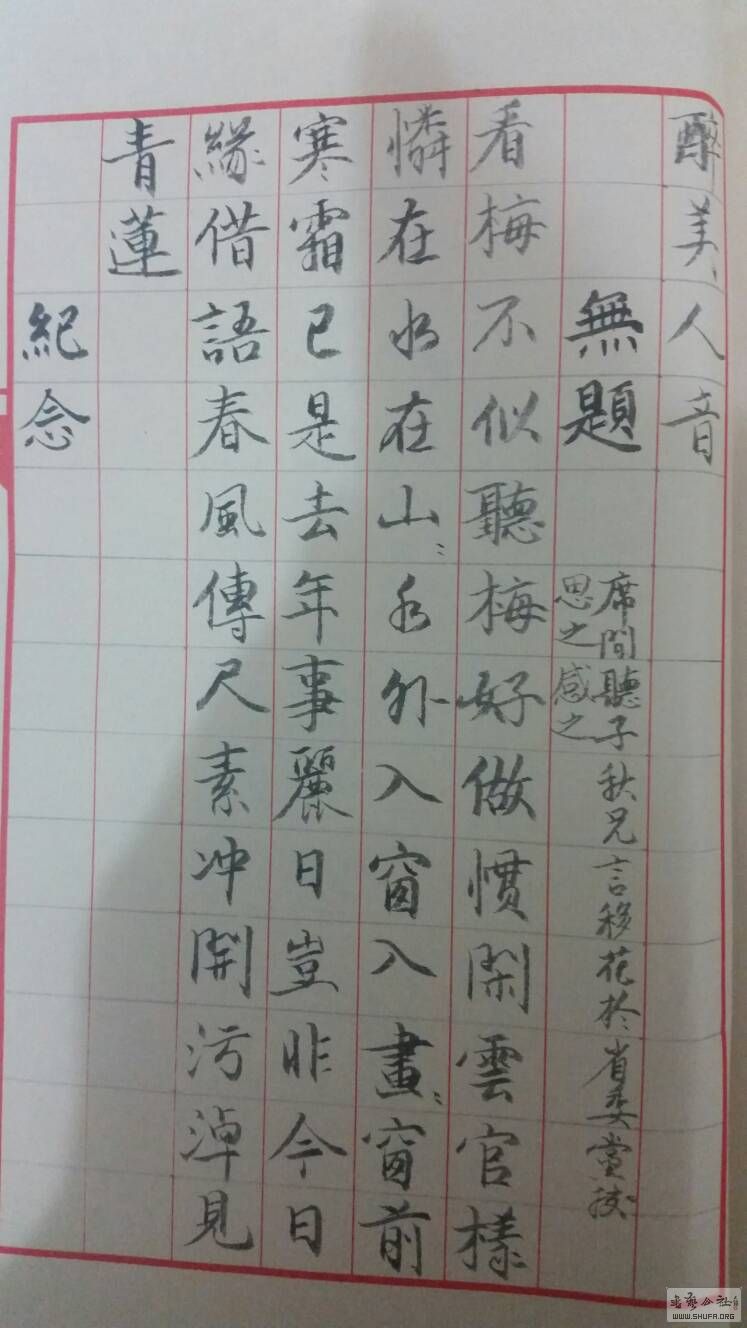 醉美人音
無題
席間聽子秋兄言移花於省委黨校
思之感之
看梅不似聽梅好做慣閑雲官樣
憐在水在山〻水外入窗入畫〻窗前
寒霜已是去年事麗日豈昨今日
緣借語春風傳尺素冲開污淖見
青蓮
紀念
WWW.SHUFA.ORG